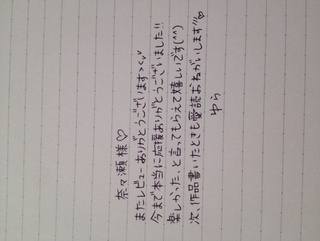 奈々瀬様♡
またレビューありがとうございます><♡
今まで本当に応援ありがとうございました!!
楽しかった、と言ってもらえて嬉しいです(^^)
次、作品書いたときも愛読おねがいします!!♡
ゆら